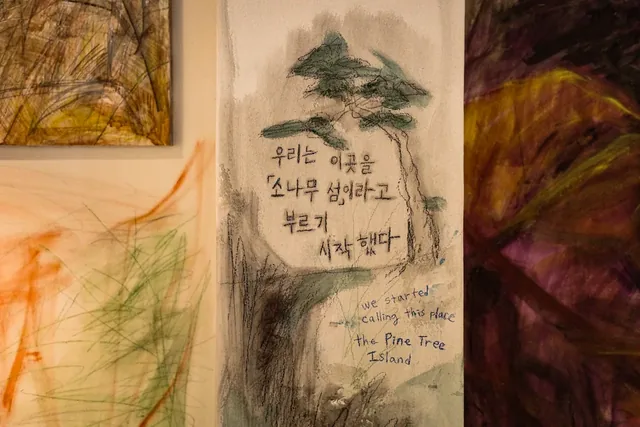 우리는 이곳을
「소나무 섬」이라고
부르기
시작 했다
we started
calling this place
the Pine Tree
Island